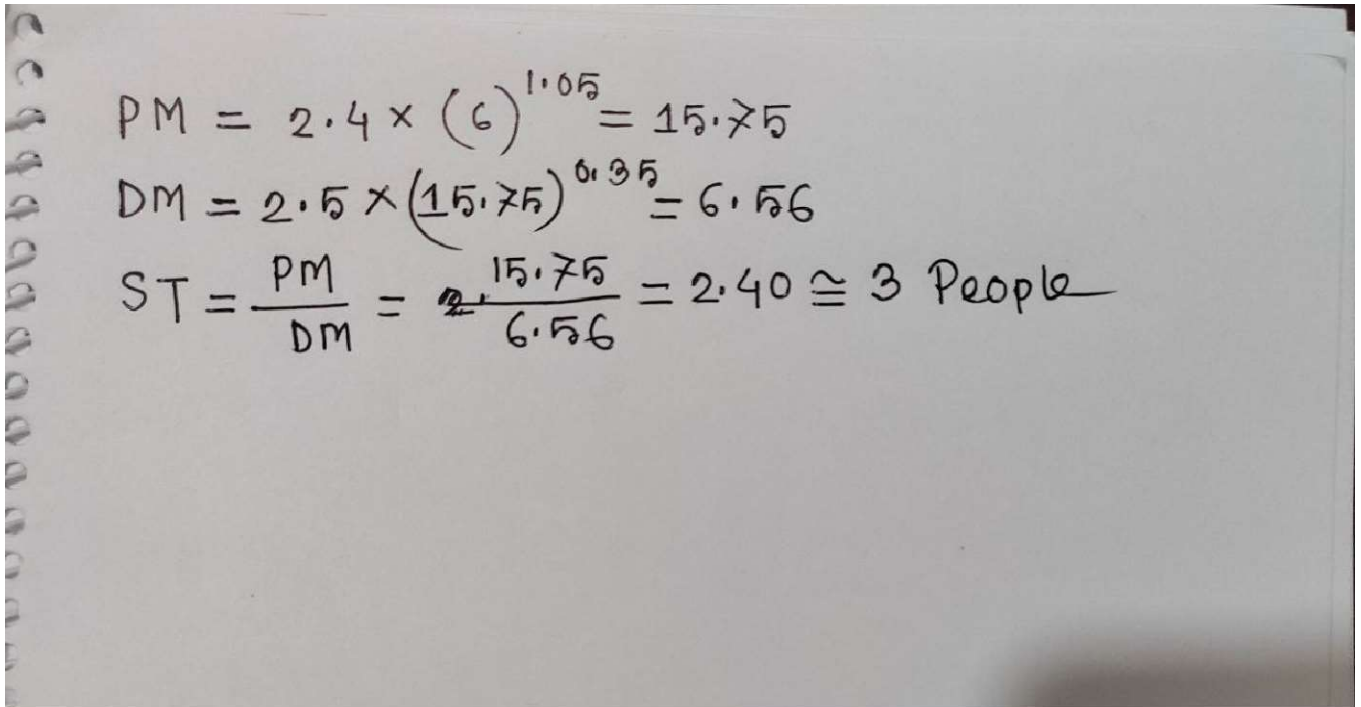 PM = 2.4 × (6)^1.05 = 15.75
DM = 2.5 × (15.75)^0.35 = 6.56
ST = PM/DM = 15.75/6.56 = 2.40 ≅ 3 People